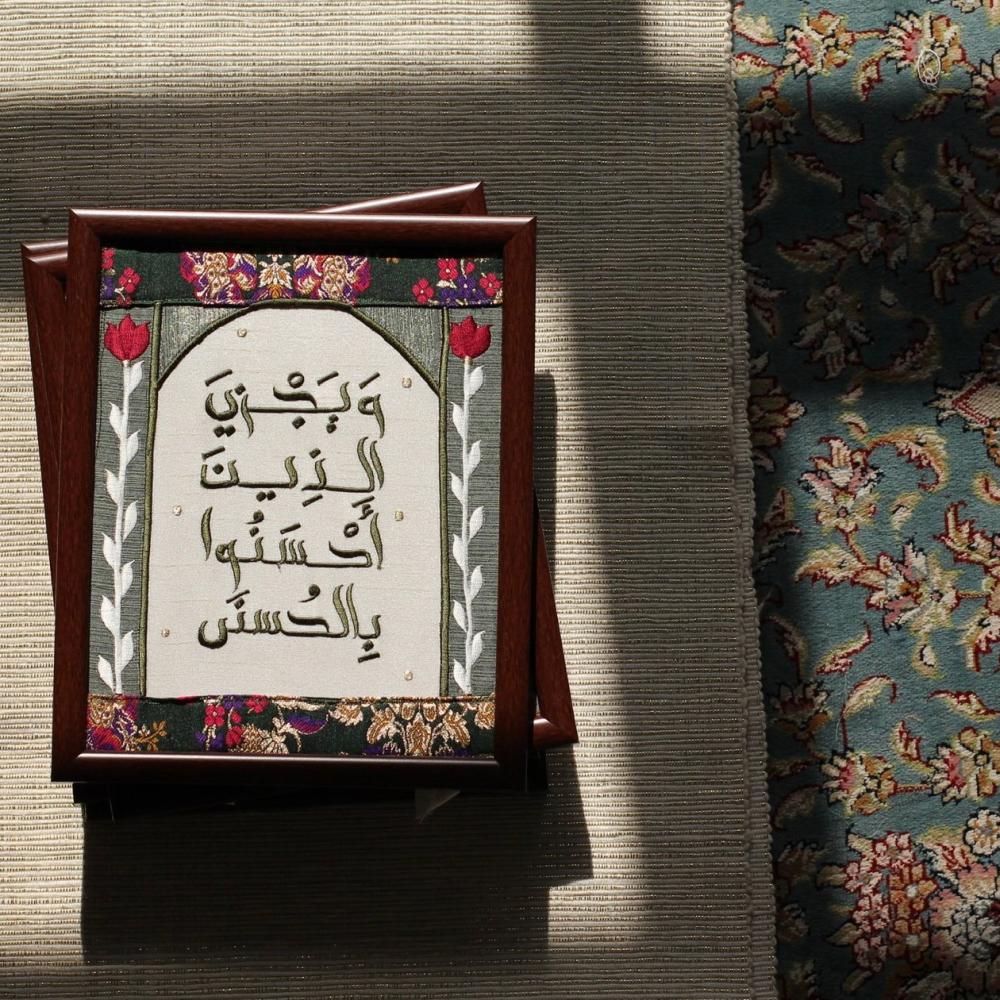 وَيَجْزِيَ
الَّذِينَ
أَحْسَنُوا
بِالْحُسنَى